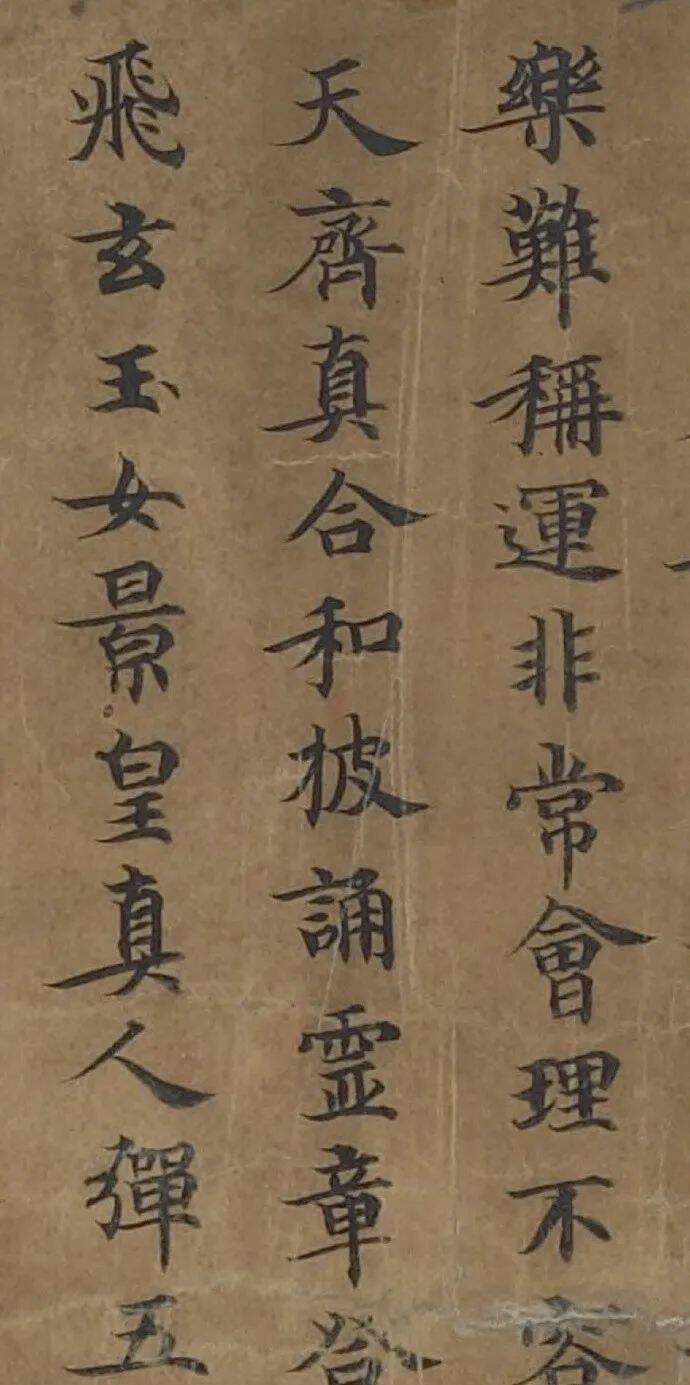 樂難稱運非常會理不容
天齊真合和披誦霊章
飛玄玉女景皇真人彈五